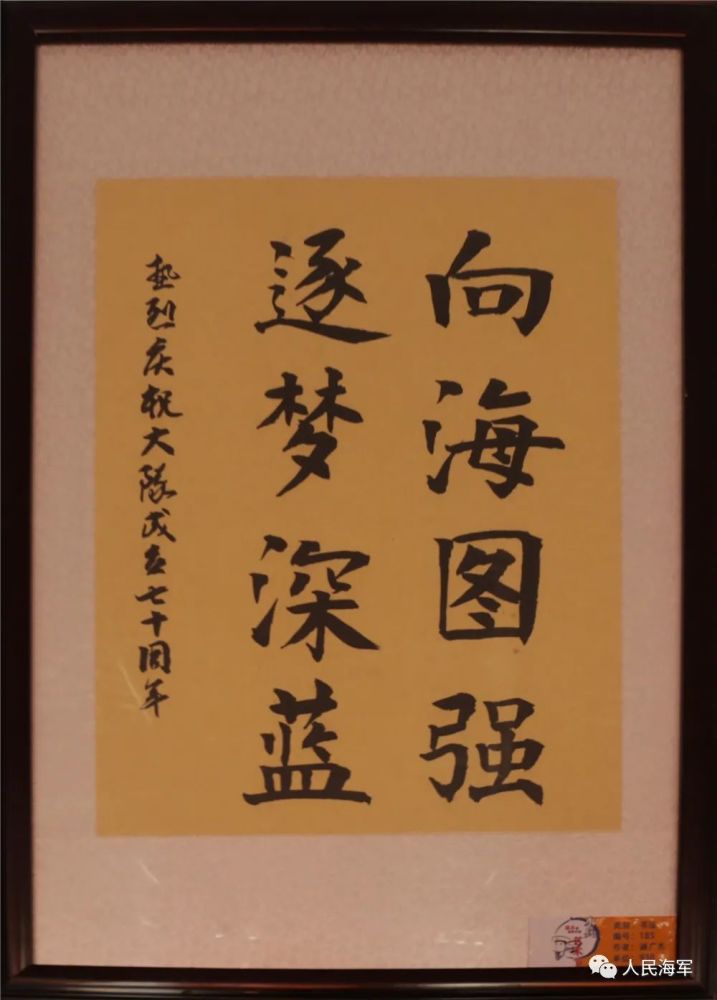 向海图强
逐梦深蓝
热烈庆祝大队成立七十周年
编号：185
人民海军